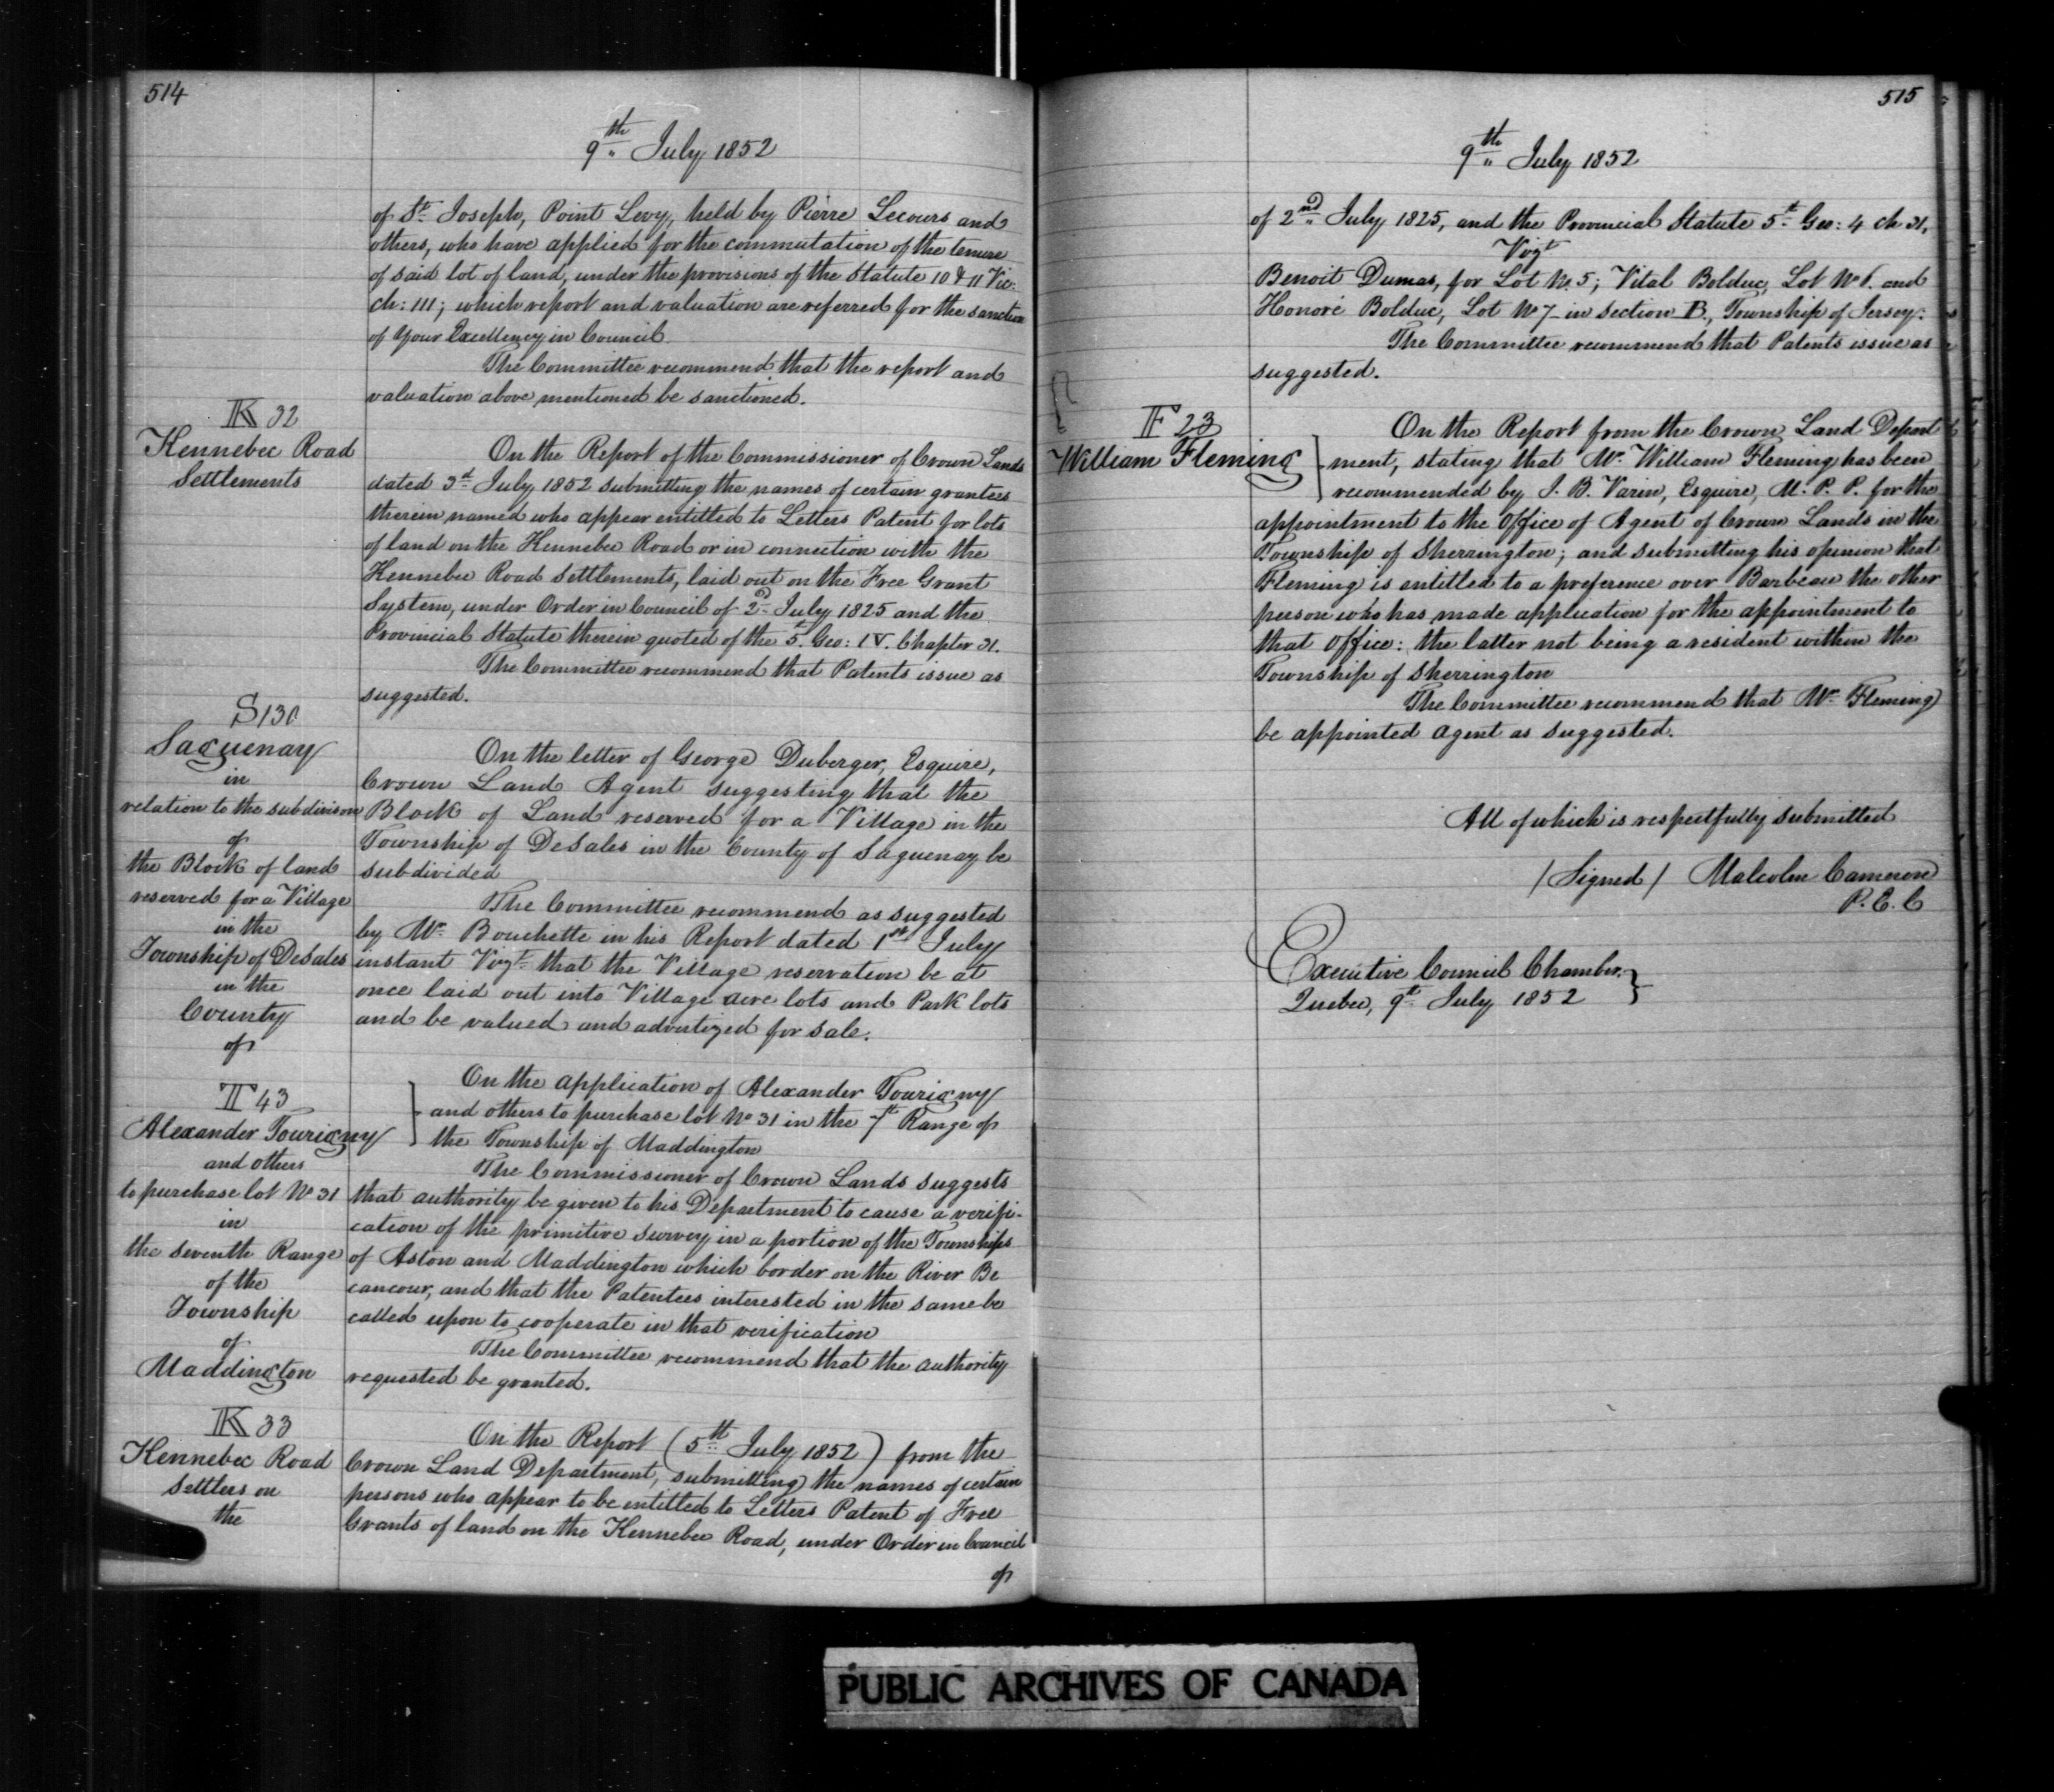 514
9th July 1852
of St Joseph, Point Levy, held by Pierre Lecours and
others, who have applied for the commutation of the tenure
of said lot of land, under the provisions of the Statute 10 & 11 Vic:
ch: 111; which report and valuation are referred for the sanction
of Your Excellency in Council.
The Committee recommend that the report and
valuation above mentioned be sanctioned.
K 32
Kennebec Road
Settlements
On the Report of the Commissioner of Crown Lands
dated 3d July 1852 submitting the names of certain grantees
therein named who appear entitled to Letters Patent for lots
of land on the Kennebec Road or in connection with the
Kennebec Road Settlements, laid out on the Free Grant
System, under Order in Council of 2d July 1825 and the
Provincial Statute therein quoted of the 5t Geo: IV. Chapter 31.
The Committee recommend that Patents issue as
suggested.
S 130
Saguenay
in
relation to the subdivison
of
the Block of land
reserved for a Village
in the
Township of DeSales
in the
County
of
On the letter of George Duberger, Esquire,
Crown Land Agent suggesting that the
Block of Land reserved for a Village in the
Township of DeSales in the County of Saguenay be
subdivided
The Committee recommend as suggested
by Mr Bouchette in his Report dated 1st July
instant Vizt that the Village reservation be at
once laid out into Village acre lots and Park lots
and be valued and advertized for sale.
T 43
Alexander Tourigny
and others
to purchase lot No 31
in
the Seventh Range
of the
Township
of
Maddington
On the application of Alexander Tourigny
and others to purchase lot No 31 in the 7t Range of
the Township of Maddington
The Commissioner of Crown Lands suggests
that authority be given to his Department to cause a verifi-
cation of the primitive survey in a portion of the Townships
of Aston and Maddington which border on the River Be
cancour, and that the Patentees interested in the same be
called upon to cooperate in that verification
The Committee recommend that the authority
requested be granted.
K 33
Kennebec Road
Settlers on
the
On the Report (5th July 1852) from the
Crown Land Department, submitting the names of certain
persons who appear to be entitled to Letters Patent of Free
Grants of land on the Kennebec Road, under Order in Council
of
515
9th July 1852
of 2nd July 1825, and the Provincial Statute 5t Geo: 4 ch 31,
Vizt
Benoit Dumas, for Lot No 5; Vital Bolduc, Lot No 6. and
Honoré Bolduc, Lot No 7 in Section B., Township of Jersey.
The Committee recommend that Patents issue as
suggested.
F 23
William Fleming
On the Report from the Crown Land Depart
ment, stating that Mr William Fleming has been
recommended by J. B. Varin, Esquire, M. P. P. for the
appointment to the Office of Agent of Crown Lands in the
Township of Sherrington; and submitting his opinion that
Fleming is entitled to a preference over Barbeau the other
person who has made application for the appointment to
that Office: the latter not being a resident within the
Township of Sherrington
The Committee recommend that Mr Fleming
be appointed Agent as suggested.
All of which is respectfully submitted
/Signed/ Malcolm Cameron
P. E. C
Executive Council Chamber,
Quebec, 9t July 1852
PUBLIC ARCHIVES OF CANADA